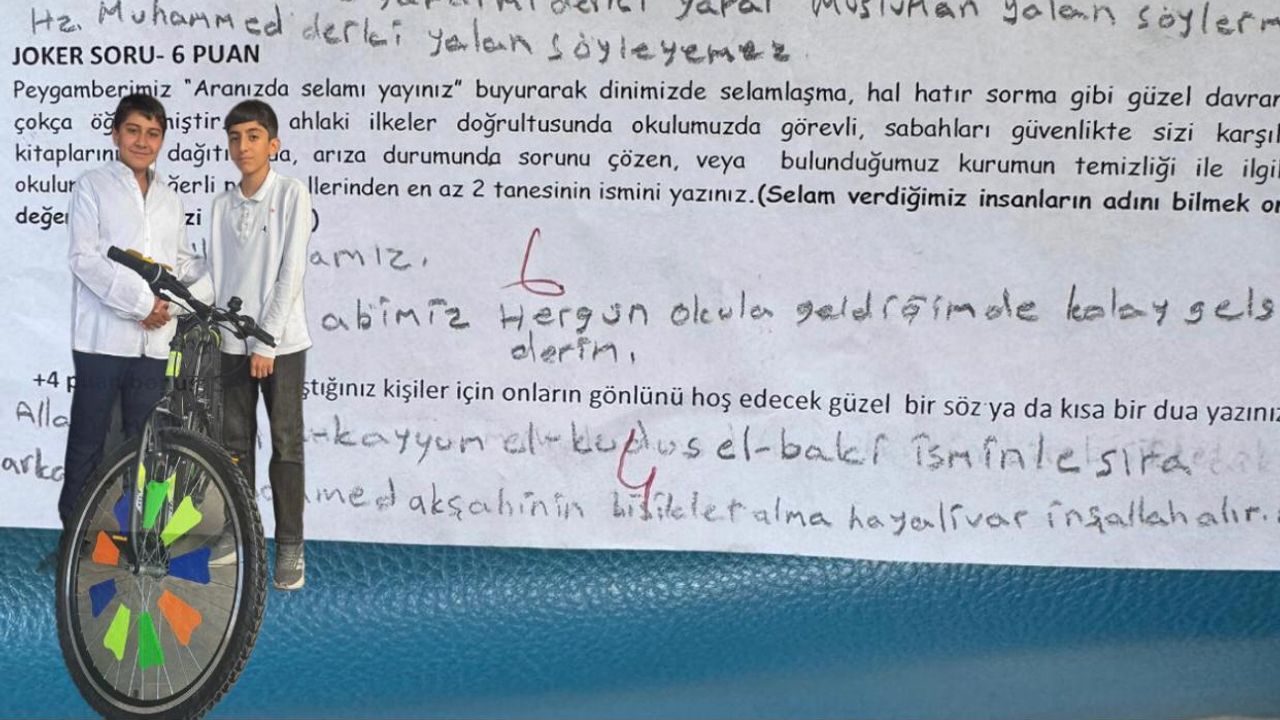 yapar Müslüman yalan söylerm
Hz. Muhammed derki yalan söyleyemez.
JOKER SORU- 6 PUAN
Peygamberimiz "Aranızda selamı yayınız" buyurarak dinimizde selamlaşma, hal hatır sorma gibi güzel davran
çokça öğ miştir. ahlaki ilkeler doğrultusunda okulumuzda görevli, sabahları güvenlikte sizi karşıl
kitaplarını dağıtı da, arıza durumunda sorunu çözen, veya bulunduğumuz kurumun temizliği ile ilgil
okulu ğerli llerinden en az 2 tanesinin ismini yazınız.(Selam verdiğimiz insanların adını bilmek on
değe zi )
amız. 6
abimiz Hergün okula geldiğimde kolay gels
derim.
+4 p ştığınız kişiler için onların gönlünü hoş edecek güzel bir söz ya da kısa bir dua yazınız
Alla -kayyum el-kudüs el-baki isminle sıra
arka med akşahinin bisiklet alma hayali var inşallah alır.
4